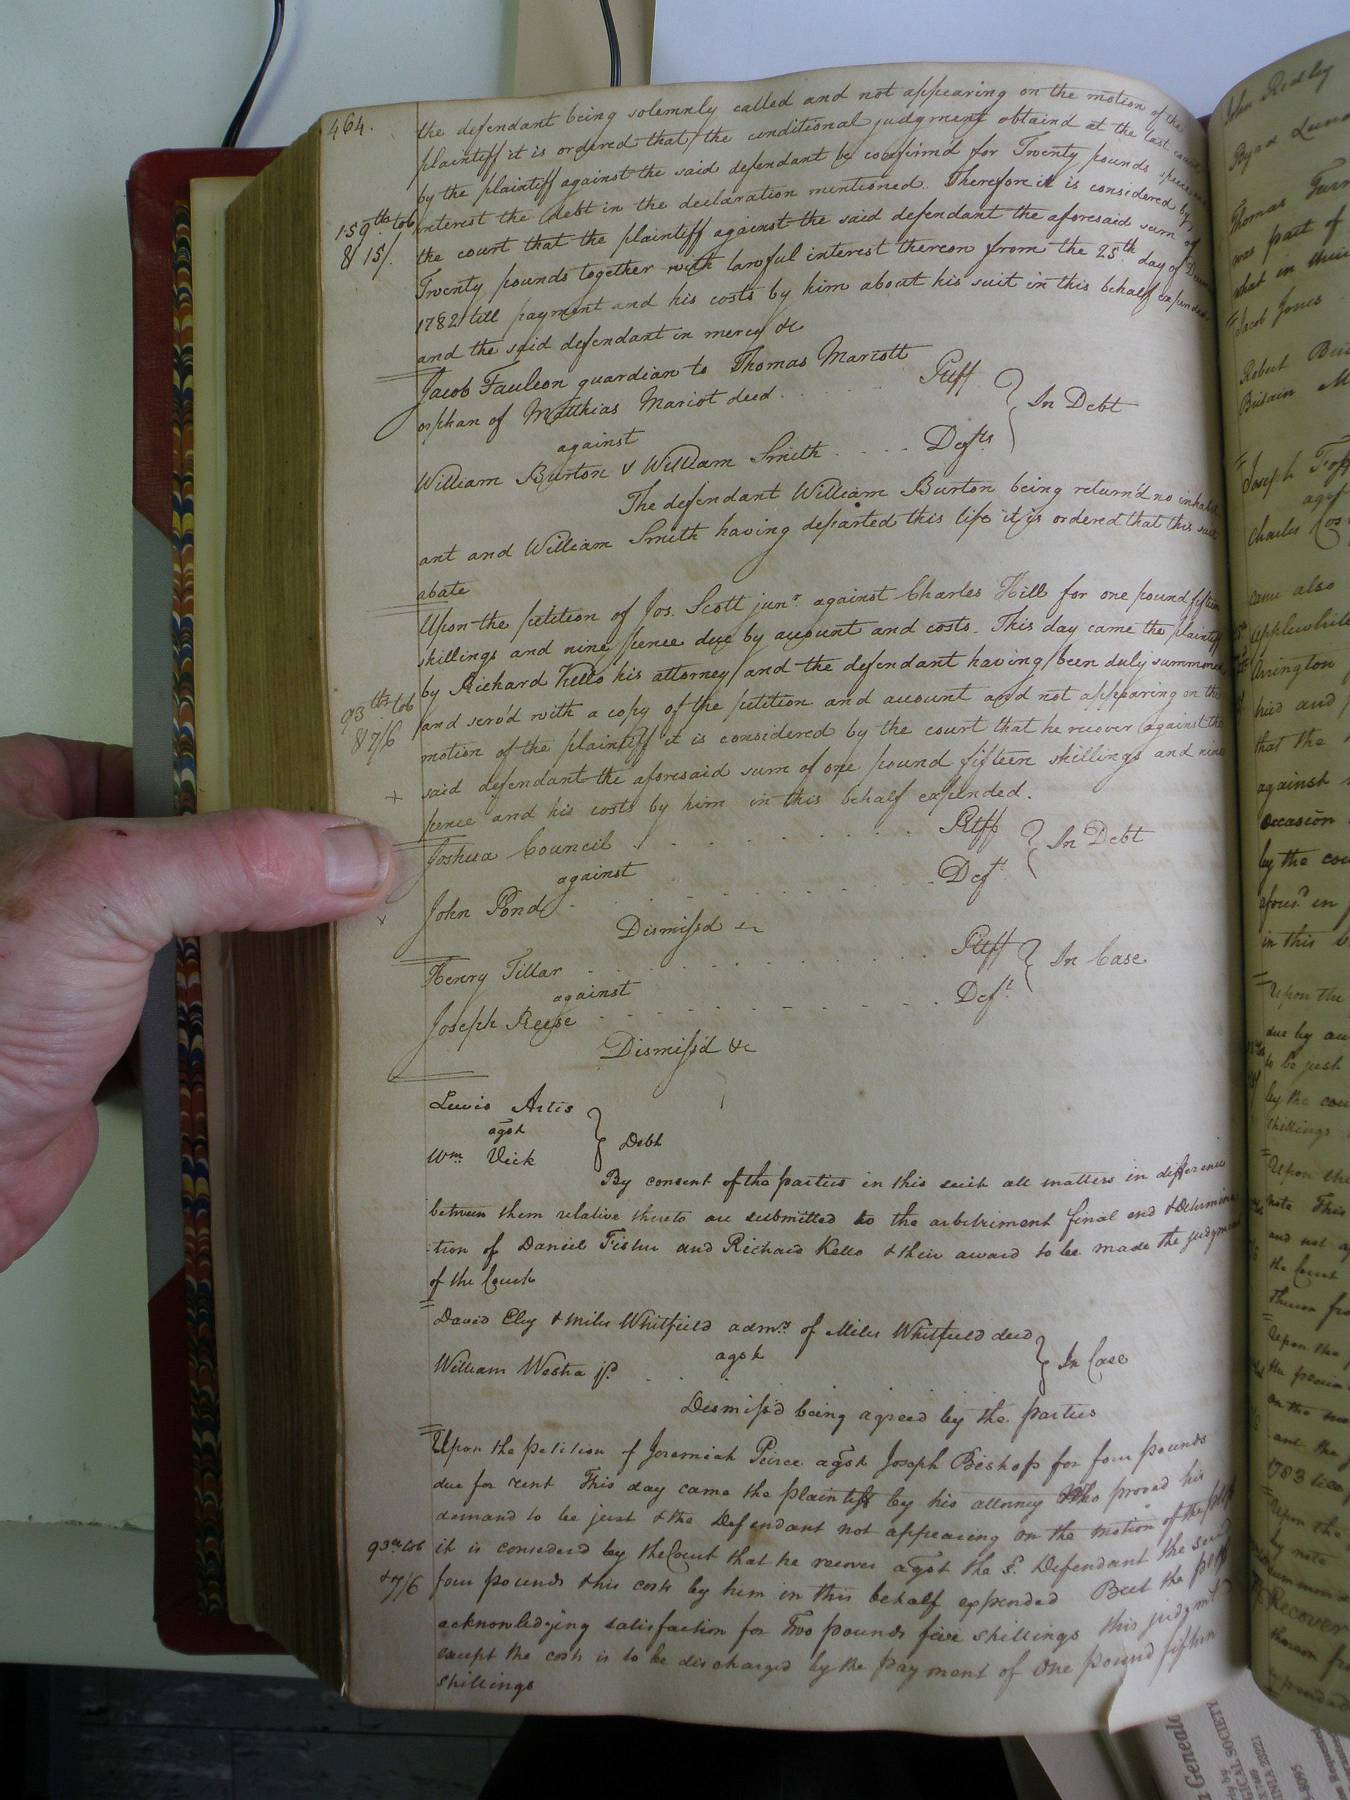 464.
the defendant being solemnly called and not appearing on the motion of the
plaintiff it is ordered that the conditional judgment obtaind at the last court
by the plaintiff against the said defendant be confirmd for Twenty pounds specie
interest the debt in the declaration mentioned. Therefore it is considered by
159 lb tob
8/15/.
the court that the plaintiff against the said defendant the aforesaid sum of
Twenty pounds together with lawful interest thereon from the 25th day of Decem
1782 till payment and his costs by him about his suit in this behalf expended
and the said defendant in mercy &c
Jacob Faulcon guardian to Thomas Mariott
orphan of Matthias Mariot deed. Pltff
against } In Debt
William Burton & William Smith Defts
The defendant William Burton being return'd no inhabit
ant and William Smith having departed this life it is ordered that this suit
abate
Upon the petition of Jos. Scott junr against Charles Hill for one pound fifteen
shillings and nine pence due by account and costs. This day came the plaintiff
by Richard Kello his attorney and the defendant having been duly summoned
93 lbs tob
& 7/6
and serv'd with a copy of the petition and account and not appearing on the
motion of the plaintiff it is considered by the court that he recover against the
said defendant the aforesaid sum of one pound fifteen shillings and nine
pence and his costs by him in this behalf expended.
Joshua Council Pltff
against } In Debt
John Pond Deft
Dismissd &c
Henry Tillar Pltff
against } In Case
Joseph Reese Deft
Dismiss'd &c
Lewis Artis
agst } Debt
Wm Vick
By consent of the parties in this suit all matters in difference
between them relative thereto are submitted to the arbitriment final end & determina
tion of Daniel Fisher and Richard Kello & their award to be made the judgment
of the Court
David Eley & Miles Whitfield admrs of Miles Whitfield deed
agst } In Case
William Westra
Dismiss'd being agreed by the parties
Upon the petition of Jeremiah Peirce agst Joseph Bishop for four pounds
due for rent This day came the plaintiff by his attorney Who proved his
demand to be just & the Defendant not appearing on the motion of the pltff
93 lb tob
& 7/6
it is considerd by the Court that he recover agst the sd Defendant the said
four pounds & his costs by him in this behalf expended But the pltff
acknowledging satisfaction for Two pounds five shillings this judgmt
except the costs is to be discharged by the payment of one pound fifteen
shillings
John Ridley
Thomas Turn
was part of
what in their
Jacob Jones
Robert
Joseph
agst
Charles
came also
Applewhite
Arrington
tried and
that the
against
occasion
by the cou
in this
Upon the
due by
to be just
by the cou
shillings
Upon the
note This
and not
the Court
Upon the
the
on the
ant the
1783
Upon the
by note
Recover